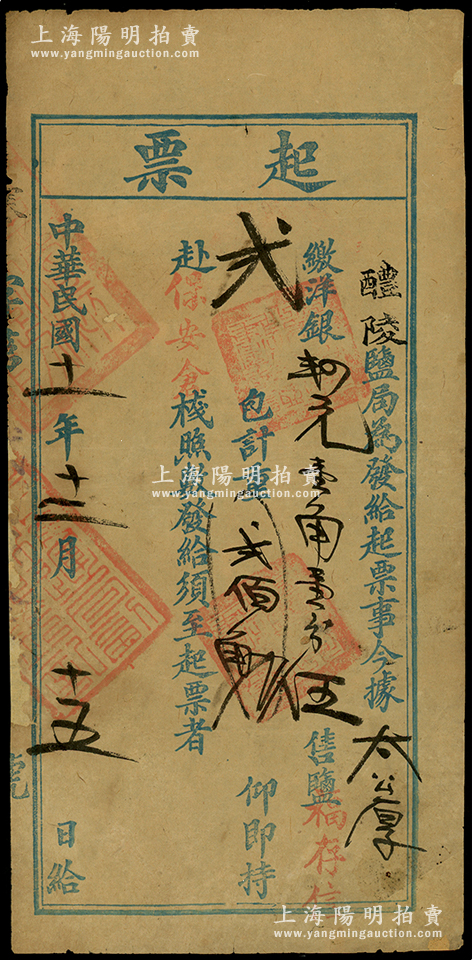 上海陽明拍賣
www.yangmingauction.com
起票
醴陵鹽局為發給起票事今據太公厚
繳洋銀元壹角壹分伍售鹽福存信
弍包計重弍佰觔仰即持
赴保安倉棧照發給須至起票者
中華民國十一年十二月十五日給
號
上海陽明拍賣
www.yangmingauction.com
上海陽明拍賣
www.yangmingauction.com